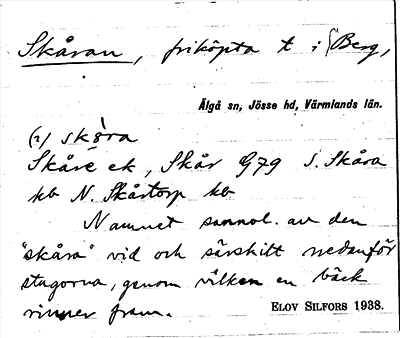 Skåran, friköpta t i Berg,
Älgå sn, Jösse hd, Värmlands län.
(2) skǻra
Skåre ek, Skår G79 S. Skåra
kb N. Skårtorp kb
Namnet sannol. av den
"skåra" vid och särskilt nedanför
stugorna, genom vilken en bäck
rinner fram.
ELOV SILFORS 1938.